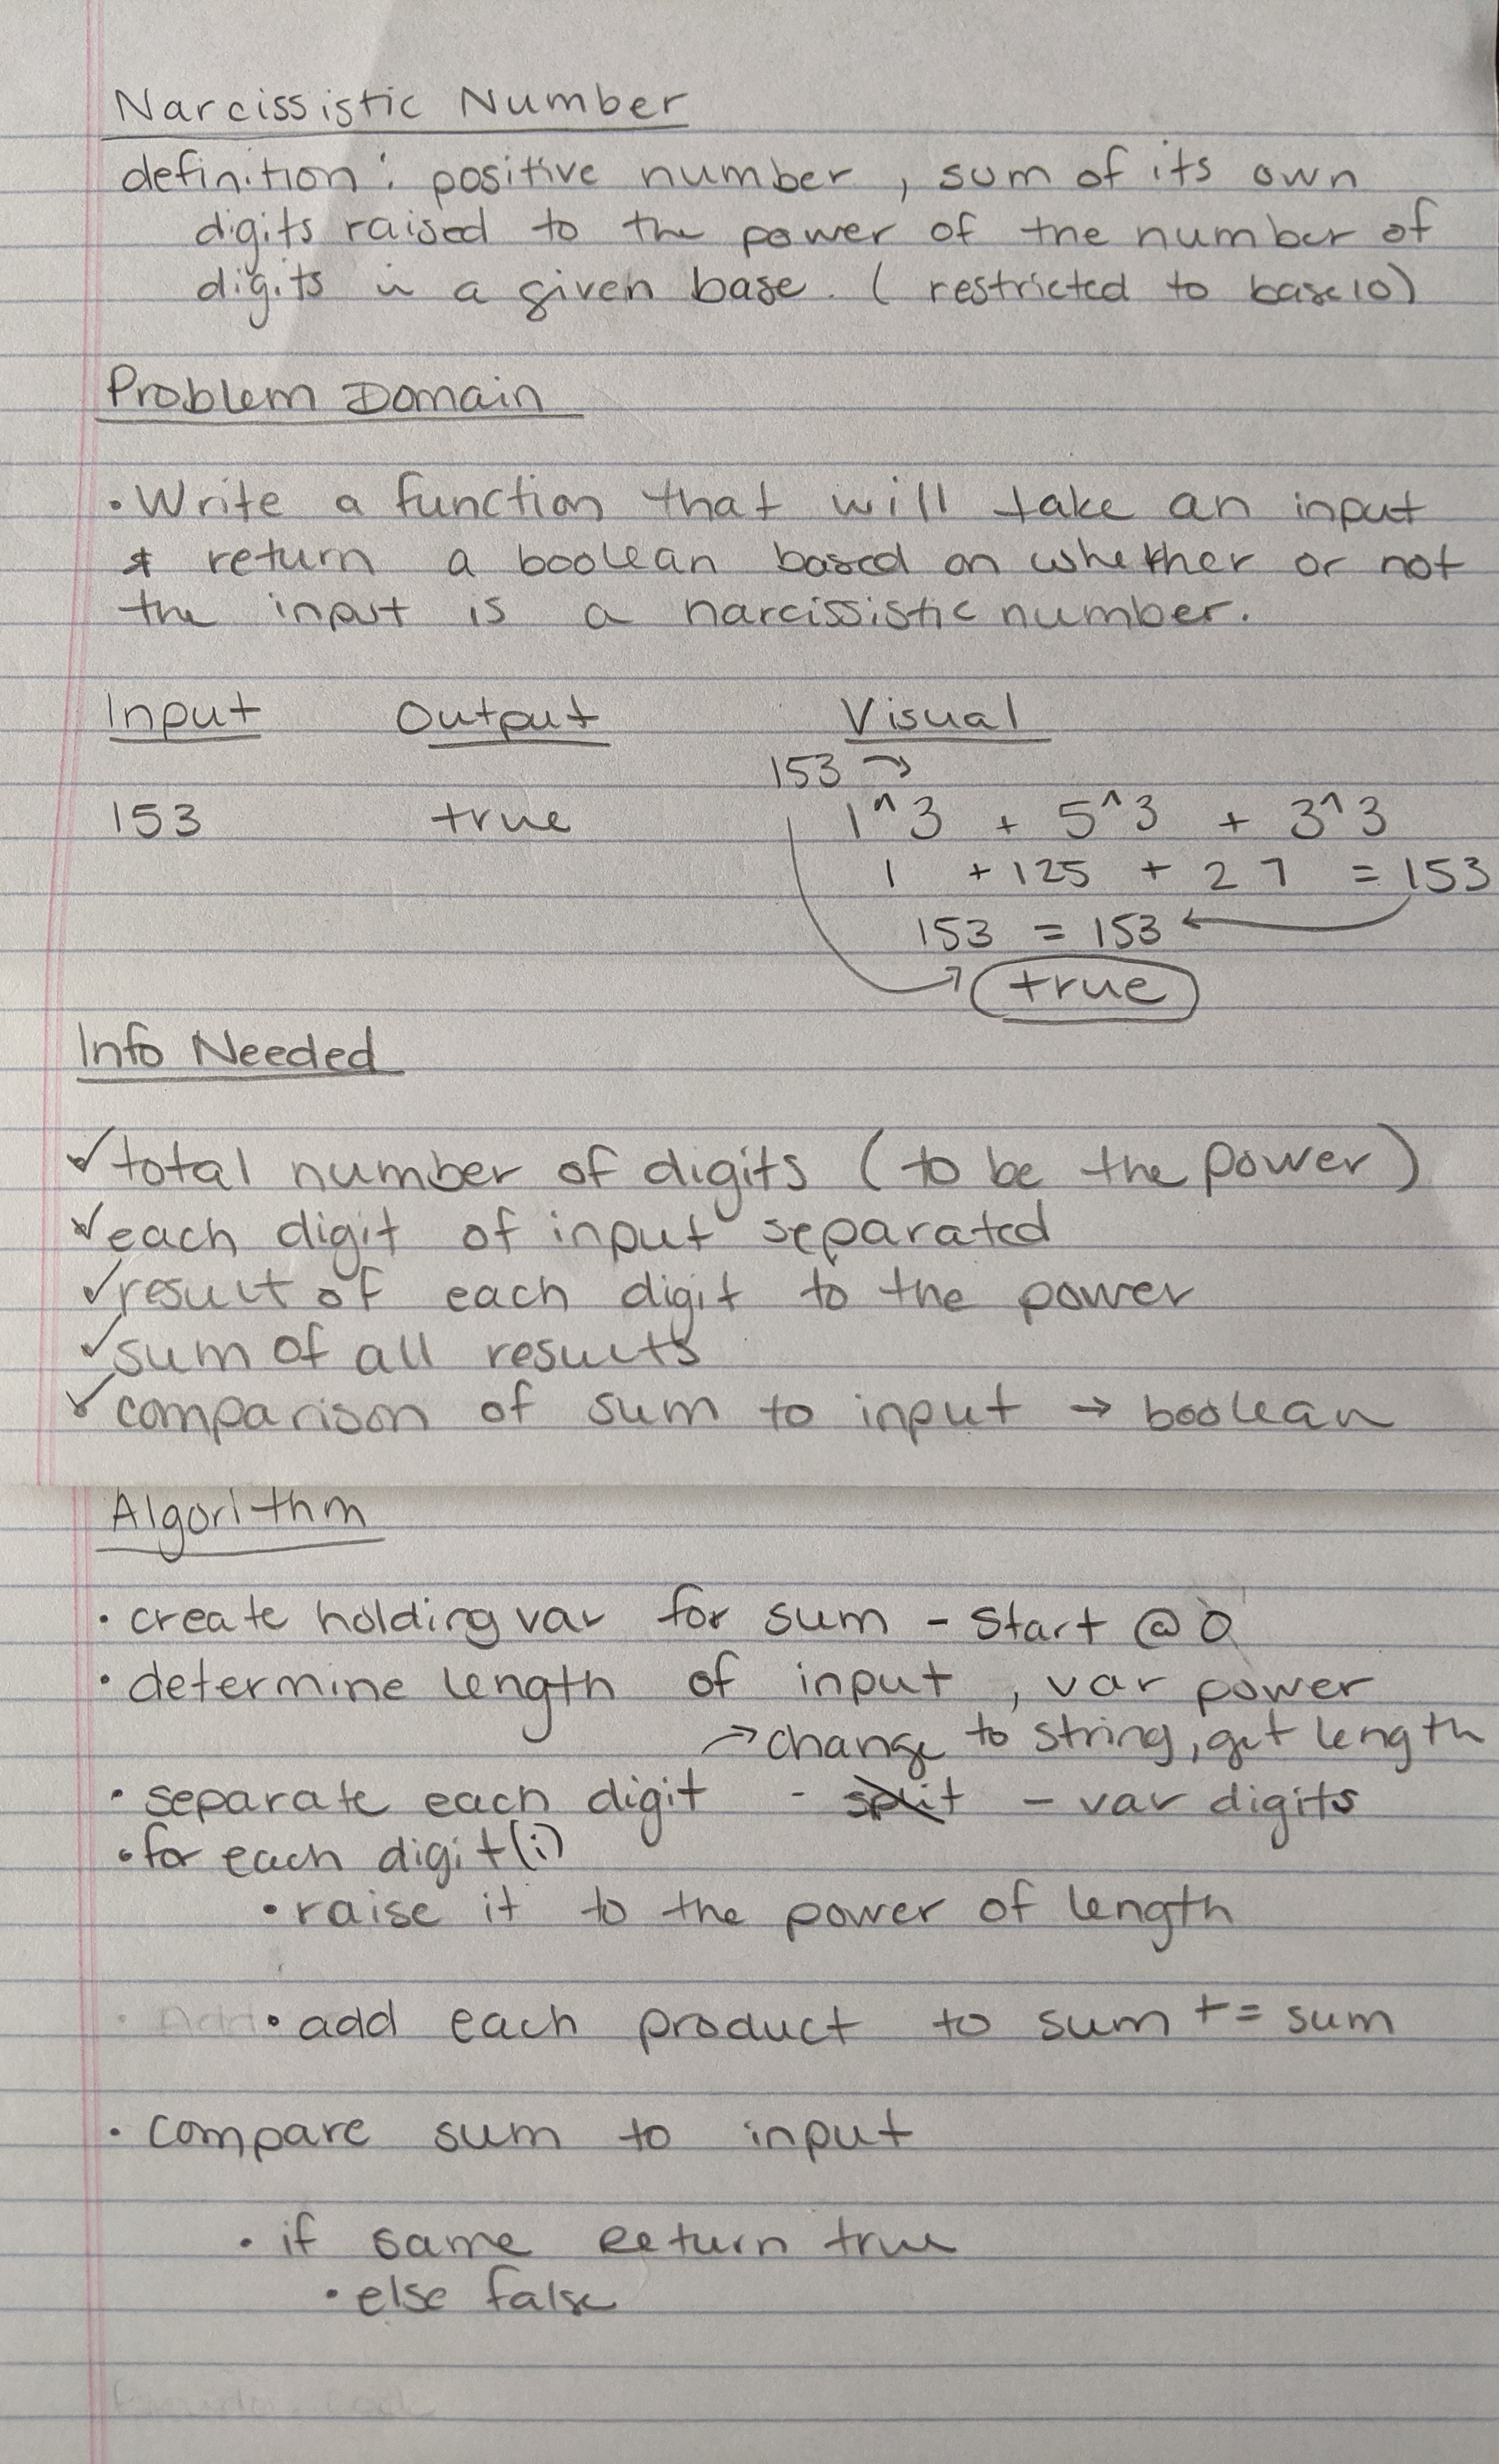 Narcissistic Number
definition: positive number, sum of its own
digits raised to the power of the number of
digits in a given base. (restricted to base 10)
Problem Domain
• Write a function that will take an input
& return a boolean based on whether or not
the input is a narcissistic number.
Input Output Visual
153 →
153 true 1^3 + 5^3 + 3^3
1 + 125 + 27 = 153
153 = 153 ←
→ true
Info Needed
✓ total number of digits (to be the power)
✓ each digit of input separated
✓ result of each digit to the power
✓ sum of all results
✓ comparison of sum to input → boolean
Algorithm
• create holding var for sum - start @ 0
• determine length of input, var power
→ change to string, get length
• separate each digit - split - var digits
• for each digit(i)
• raise it to the power of length
• Add • add each product to sum += sum
• compare sum to input
• if same return true
• else false